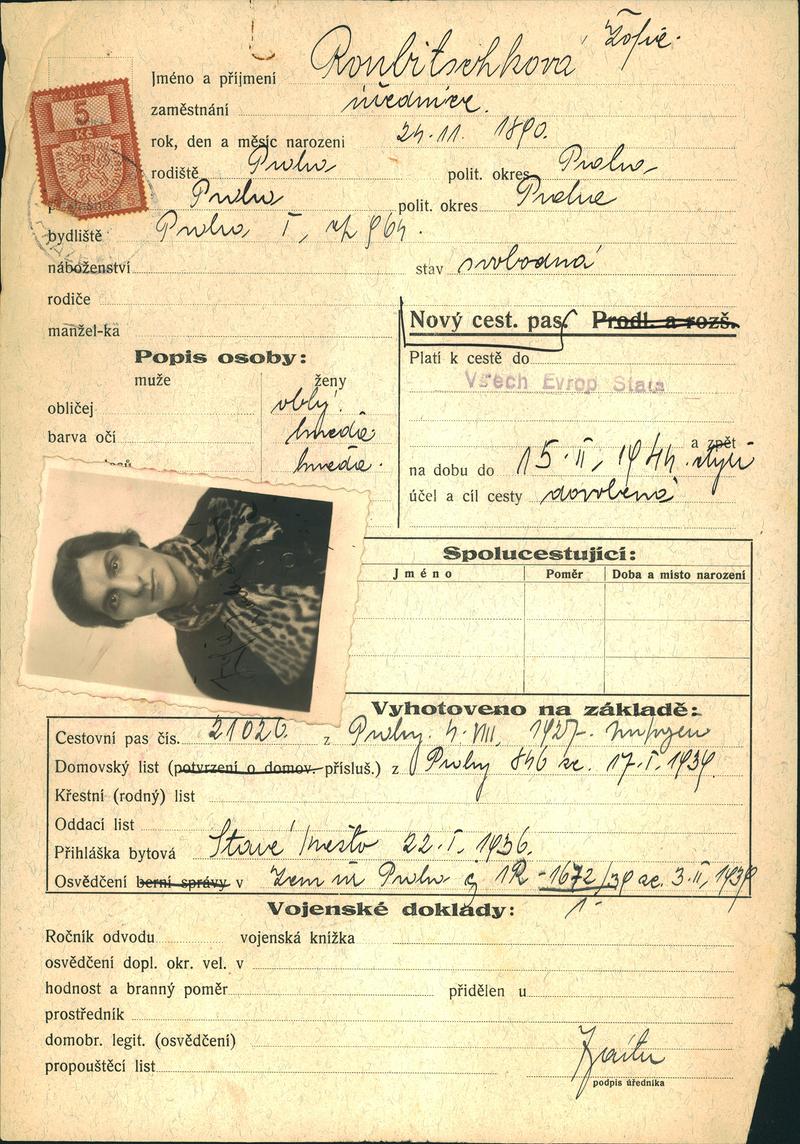 Jméno a příjmení Roubitschková Žofie.
KOLEK
5
Kč
zaměstnání úřednice.
rok, den a měsíc narození 24.11. 1890.
rodiště Praha polit. okres Praha
Praha polit. okres Praha
bydliště Praha I, čp 964.
náboženství stav svobodná
rodiče
manžel-ka
Nový cest. pas. Prodl. a rozš.
Popis osoby:
Platí k cestě do
muže ženy
Všech Evrop Států
obličej oblý
barva očí hnědá
hnědá.
a zpět
na dobu do 15.II, 1944.
účel a cíl cesty dovolená
Spolucestující:
Jméno Poměr Doba a místo narození
Vyhotoveno na základě:
Cestovní pas čís. 21026. z Prahy. 4.VIII, 1927.
Domovský list (potvrzení o domov. přísluš.) z Prahy 846 ze. 17.I.1939.
Křestní (rodný) list
Oddací list
Přihláška bytová Staré Město 22.I. 1936.
Osvědčení berní správy v Zem úř Praha č 1R -1672/39 ze. 3.II, 1939
Vojenské doklady:
Ročník odvodu vojenská knížka
osvědčení dopl. okr. vel. v
hodnost a branný poměr přidělen u
prostředník
domobr. legit. (osvědčení)
propouštěcí list
podpis úředníka